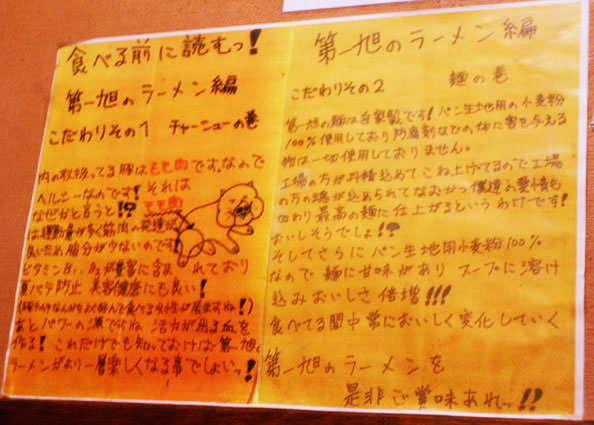 食べる前に読むっ!
第一旭のラーメン編
こだわりその1 チャーシューの巻
肉の取扱ってる豚はもも肉です。なので
ヘルシーなのです! それは
なぜかと言うと!? もも肉
は運動量が多く筋肉の発達が
良いため脂分が少ないのです!
ビタミンB1、B2が豊富に含まれており
夏バテ防止 美容健康にも良い!
食べる女性が居ますね!)
あとパワーの源ですね 活力が出る血を
作る! これだけでも知っておけば第一旭の
ラーメンがより一層楽しくなる事でしょいっ!
第一旭のラーメン編
こだわりその2 麺の巻
第一旭の麺は自家製です! パン生地用の小麦粉
100%使用しており防腐剤などの体に害を与える
物は一切使用しておりません。
工場の方が丹精込めてこね上げてるので工場
の方の魂が込められてなおかつ僕達の愛情も
加わり最高の麺に仕上がるというわけです!
おいしそうでしょ!?
そしてさらに パン生地用小麦粉100%
なので 麺に甘味があり スープに溶け
込みおいしさ倍増!!!
食べてる間中常においしく変化していく
第一旭のラーメンを
是非ご賞味あれっ!!?